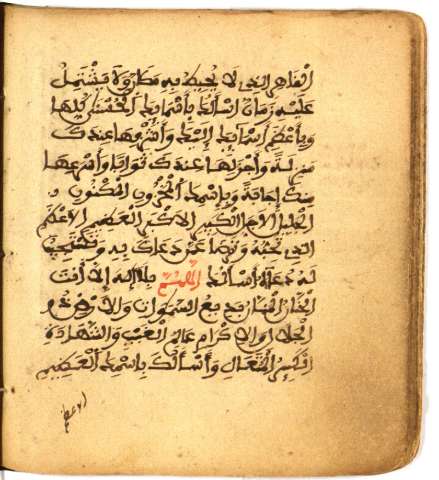 القاهر الذي لا يحيط به مكان ولا يشتمل
عليه زمان اسألك بأسمائك الحسنى كلها
وبأعظم أسمائك إليك وأشرفها عندك
منزلة وأجزلها عندك ثوابا وأسرعها
منك إجابة وبإسمك المخزون المكنون
الجليل الاجل الكبير الاكبر العظيم الاعظم
الذي تحبه وترضى عمن دعاك به وتستجيب
له دعاءه أسألك اللهم بلا إله إلا أنت
الحنان المنان بديع السموات والارض ذو
الجلال والإكرام عالم الغيب والشهادة
الكبير المتعال وأسألك بإسمك العظيم
الاعظم